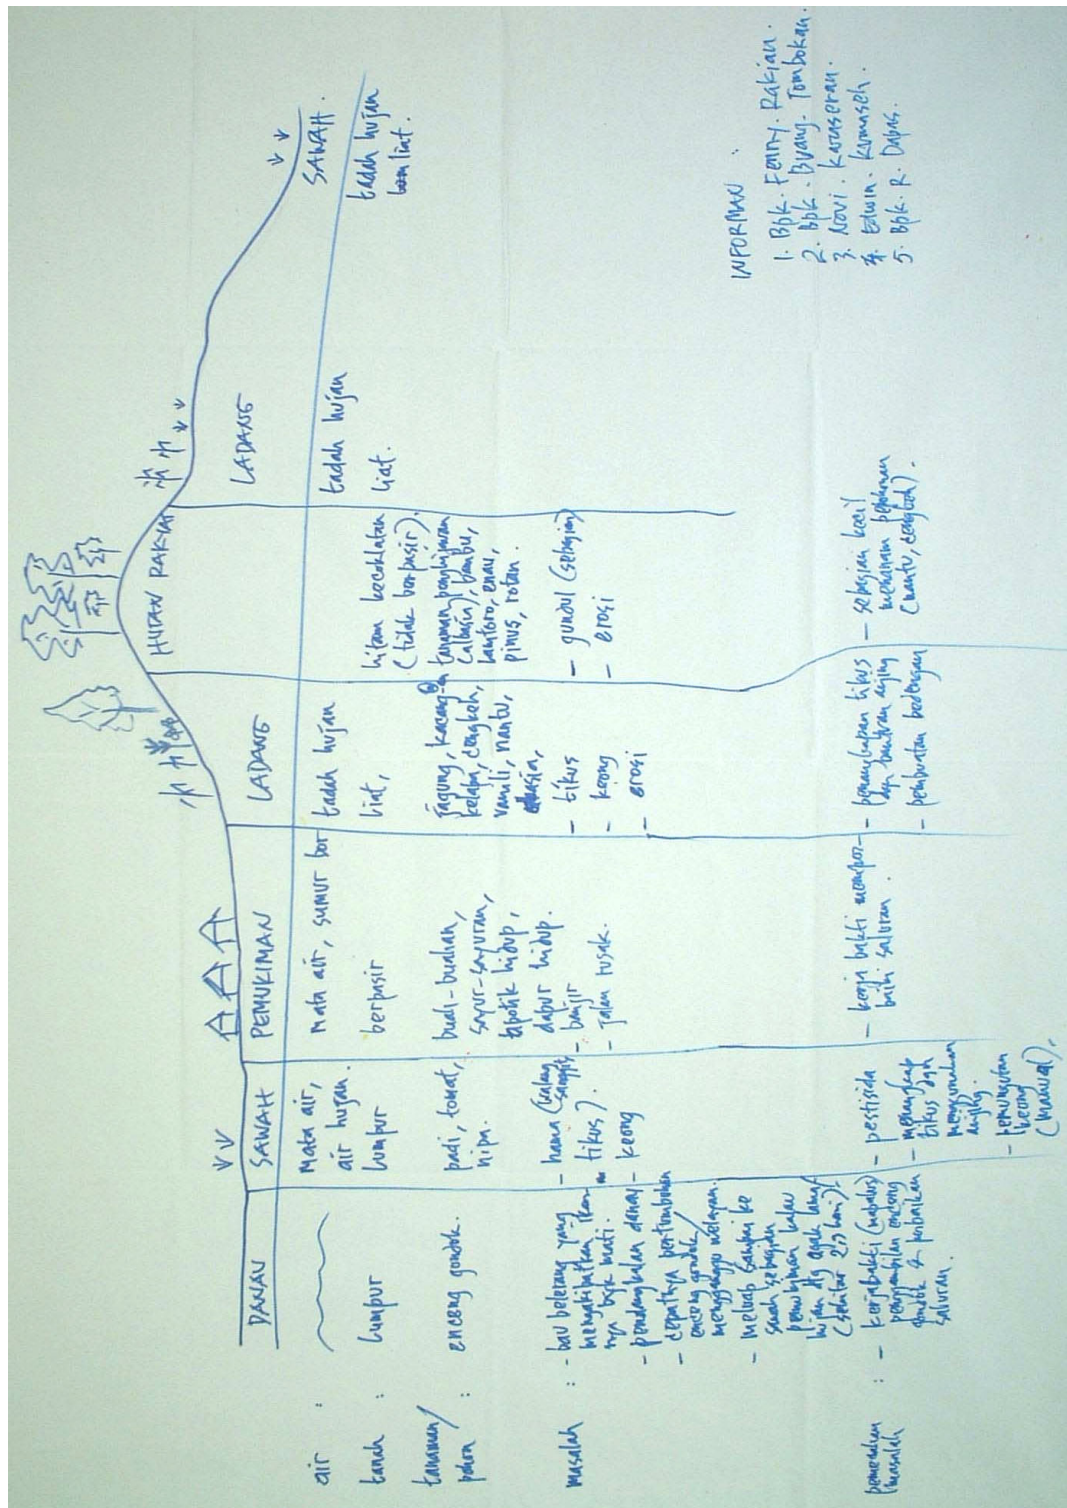 DANAU
SAWAH
PEMUKIMAN
LADANG
HUTAN RAKYAT
LADANG
SAWAH.
air :
Mata air,
air hujan.
Mata air, sumur bor
tadah hujan
tadah hujan
tadah hujan
tanah :
Lumpur
Lumpur
berpasir
liat,
hitam kecoklatan
(tidak berpasir).
liat.
liat
tanaman/
pohon :
enceng gondok.
padi, tomat,
nipa.
buah-buahan,
sayur-sayuran,
apotik hidup,
dapur hidup.
jagung, kacang
kelapa, cengkeh,
vanili, nantu,
tanaman penghijauan
bambu,
lamtoro, enau,
pinus, rotan.
masalah :
- bau belerang yang
mengakibatkan ikan
nya bsk mati.
- pendangkalan danau
- cepatnya pertumbuhan
enceng gondok/
mengganggu nelayan.
- meluap sampai ke
sawah sebagian
pemukiman kalau
hujan dtg agak lama/
(sekitar 2,3 hari).
- hama (walang
sangit,
tikus).
- keong
- banjir
- jalan rusak.
- tikus
- keong
- erosi
- gundul (sebagian)
- erosi
pemecahan
masalah :
- kerja bakti (mapalus)
pengambilan enceng
gondok & perbaikan
saluran.
- pestisida
- menangkap
tikus dgn
menggunakan
anjing.
- pemungutan
keong
(manual).
- kerja bakti memper-
baiki saluran.
- penangkapan tikus
dgn bantuan anjing
- pembuatan bedengan
- sebagian kecil
menanam pepohonan
(nantu, cengkeh).
INFORMAN :
1. Bpk. Fenny. Rakian.
2. Bpk. Buang. Tombokan.
3. Novi. Karaseran.
4. Edwin. Kumaseh.
5. Bpk. R. Dapas.